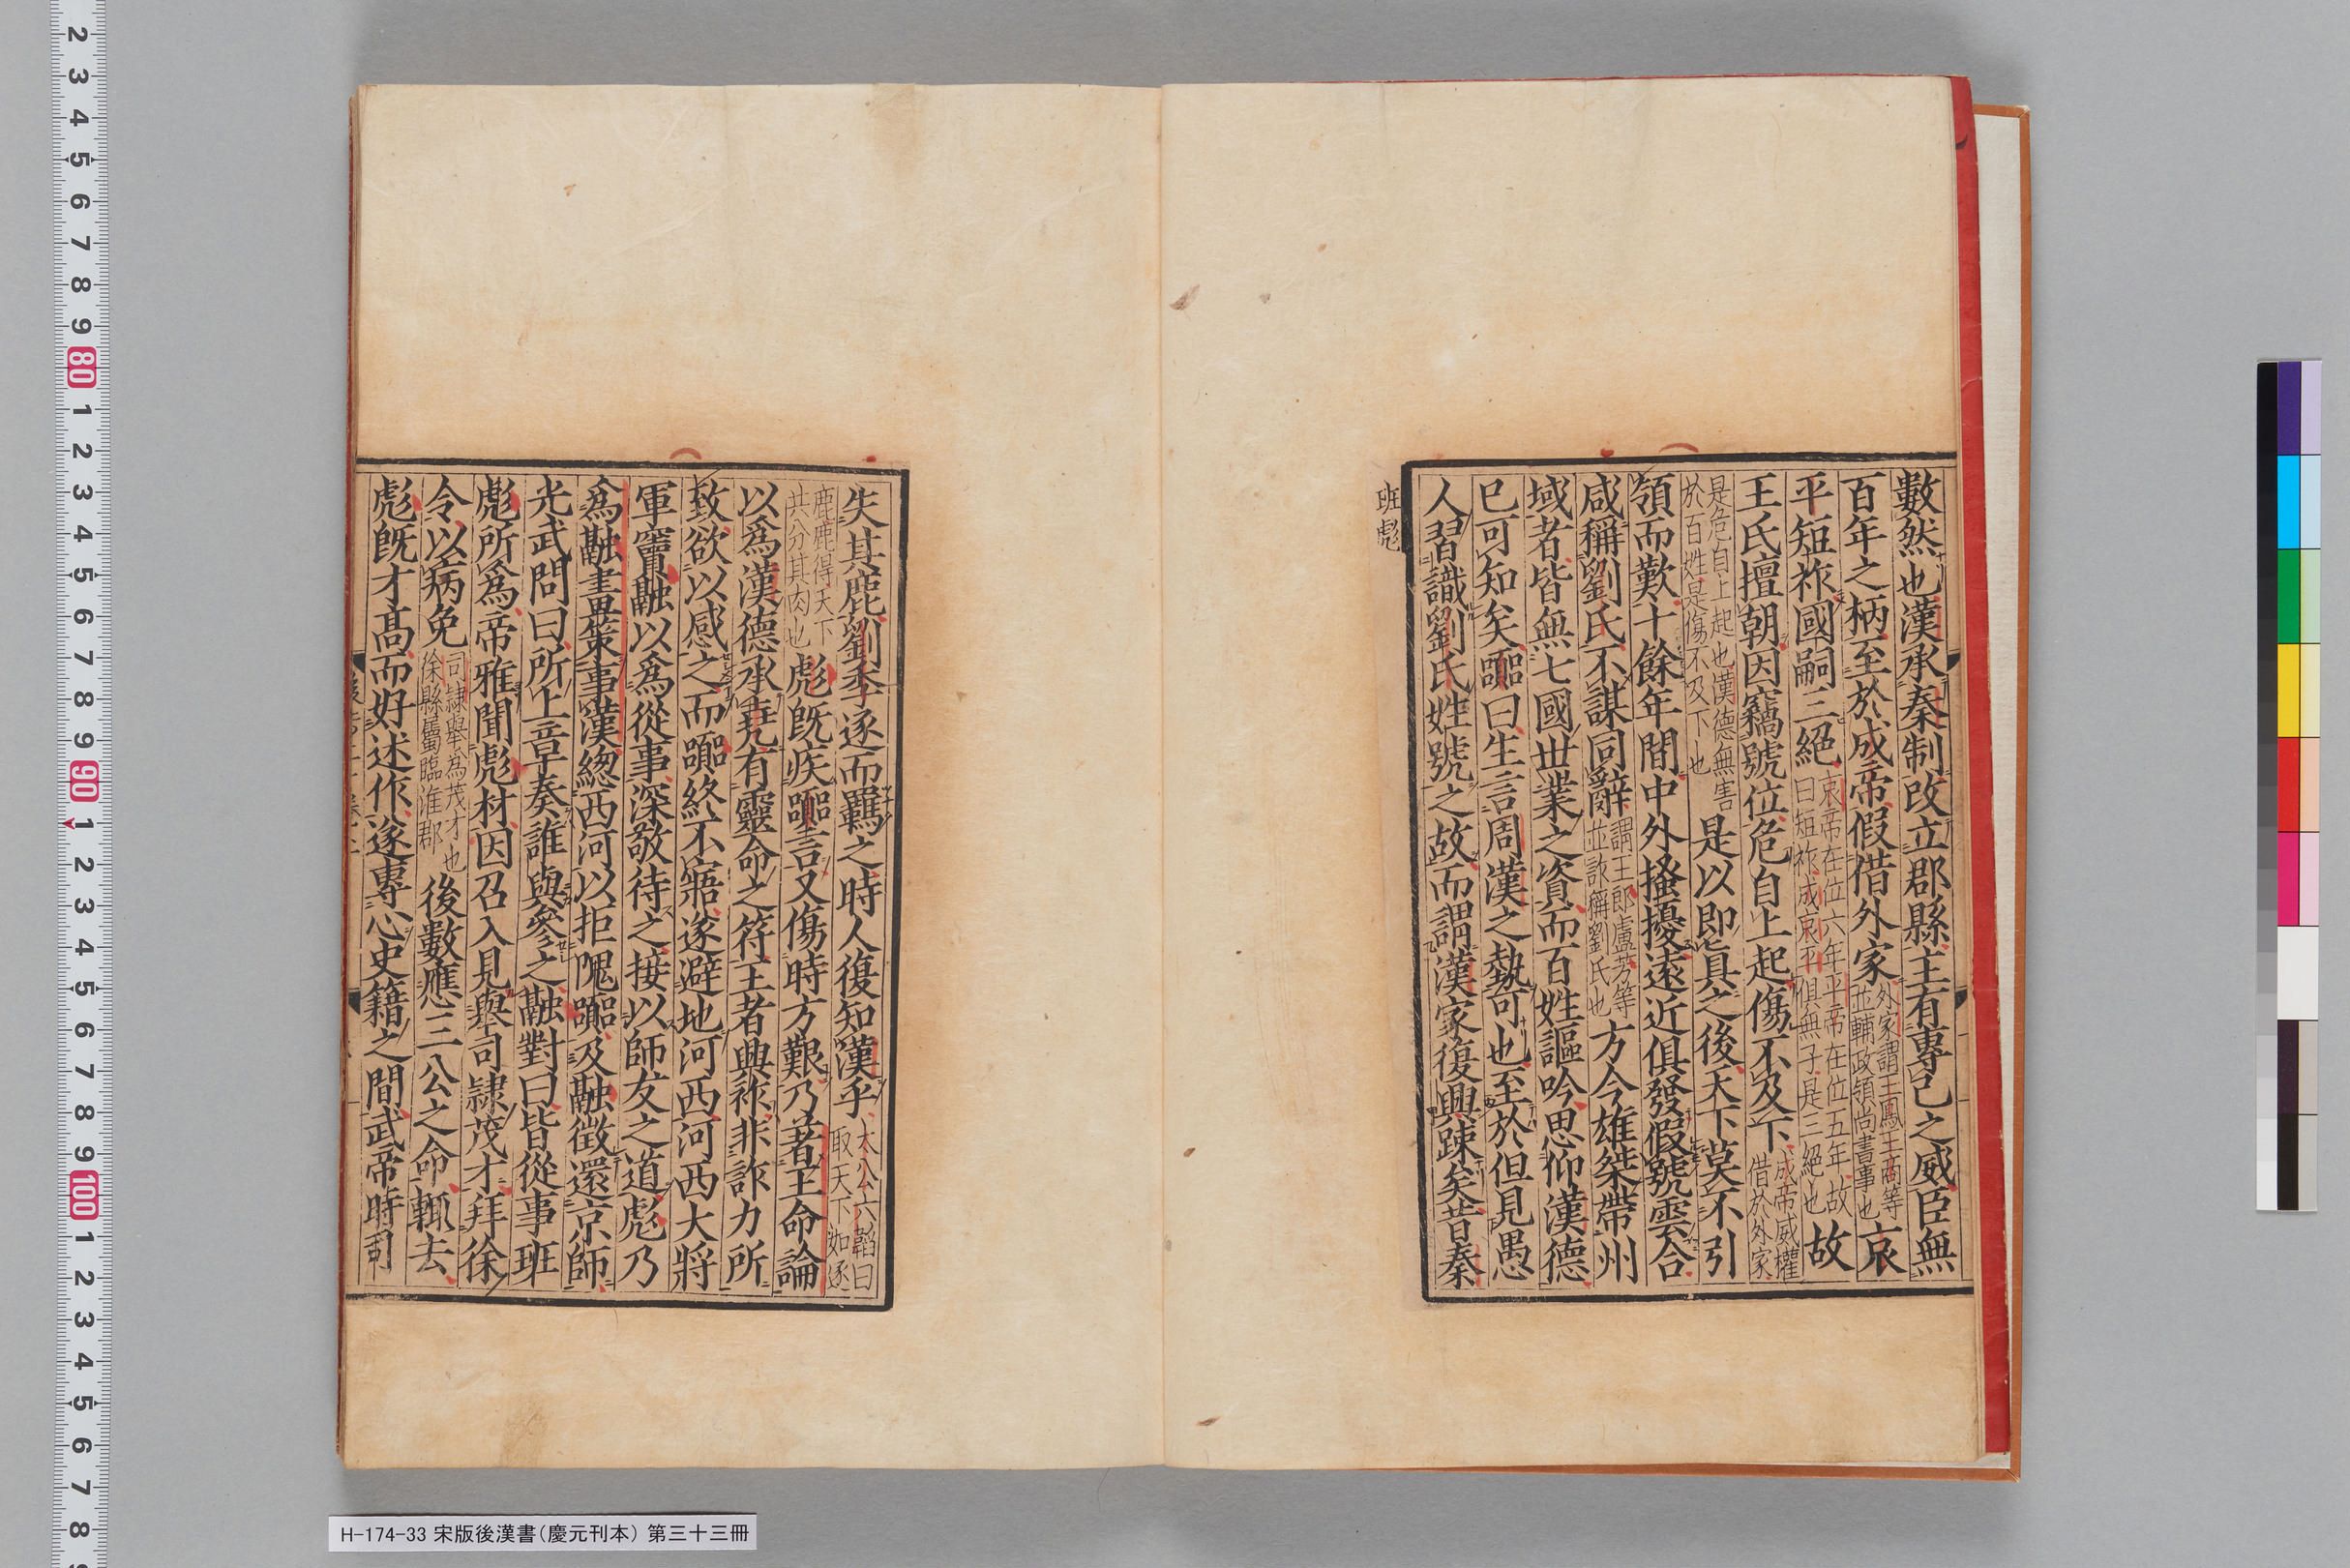 數然也漢承秦制改立郡縣主有專己之威臣無
百年之柄至於成帝假借外家外家謂王鳳王商等並輔政領尚書事也哀
平短祚國嗣三絕哀帝在位六年平帝在位五年故曰短祚成哀平俱無子是三絕也故
王氏擅朝因竊號位危自上起傷不及下成帝威權借於外家
是危自上起也漢德無害於百姓是傷不及下也是以即真之後天下莫不引
領而歎十餘年間中外搔擾遠近俱發假號雲合
咸稱劉氏不謀同辭謂王郎盧芳等並詐稱劉氏也方今雄桀帶州
域者皆無七國世業之資而百姓謳吟思仰漢德
已可知矣囂曰生言周漢之埶可也至於但見愚
人習識劉氏姓號之故而謂漢家復興踈矣昔秦
班彪
失其鹿劉季逐而羈之時人復知漢乎太公六韜曰取天下如逐
鹿鹿得天下共分其肉也彪旣疾囂言又傷時方艱乃著王命論
以爲漢德承堯有靈命之符王者興祚非詐力所
致欲以感之而囂終不寤遂避地河西河西大將
軍竇融以爲從事深敬待之接以師友之道彪乃
爲融畫策事漢緫西河以拒隗囂及融徵還京師
光武問曰所上章奏誰與參之融對曰皆從事班
彪所爲帝雅聞彪材因召入見舉司隸茂才拜徐
令以病免司隸舉為茂才也徐縣屬臨淮郡後數應三公之命輒去
彪旣才高而好述作遂專心史籍之間武帝時司
H-174-33 宋版後漢書(慶元刊本) 第三十三冊
2
3
4
5
6
7
8
9
80
1
2
3
4
5
6
7
8
9
90
1
2
3
4
5
6
7
8
9
100
1
2
3
4
5
6
7
8